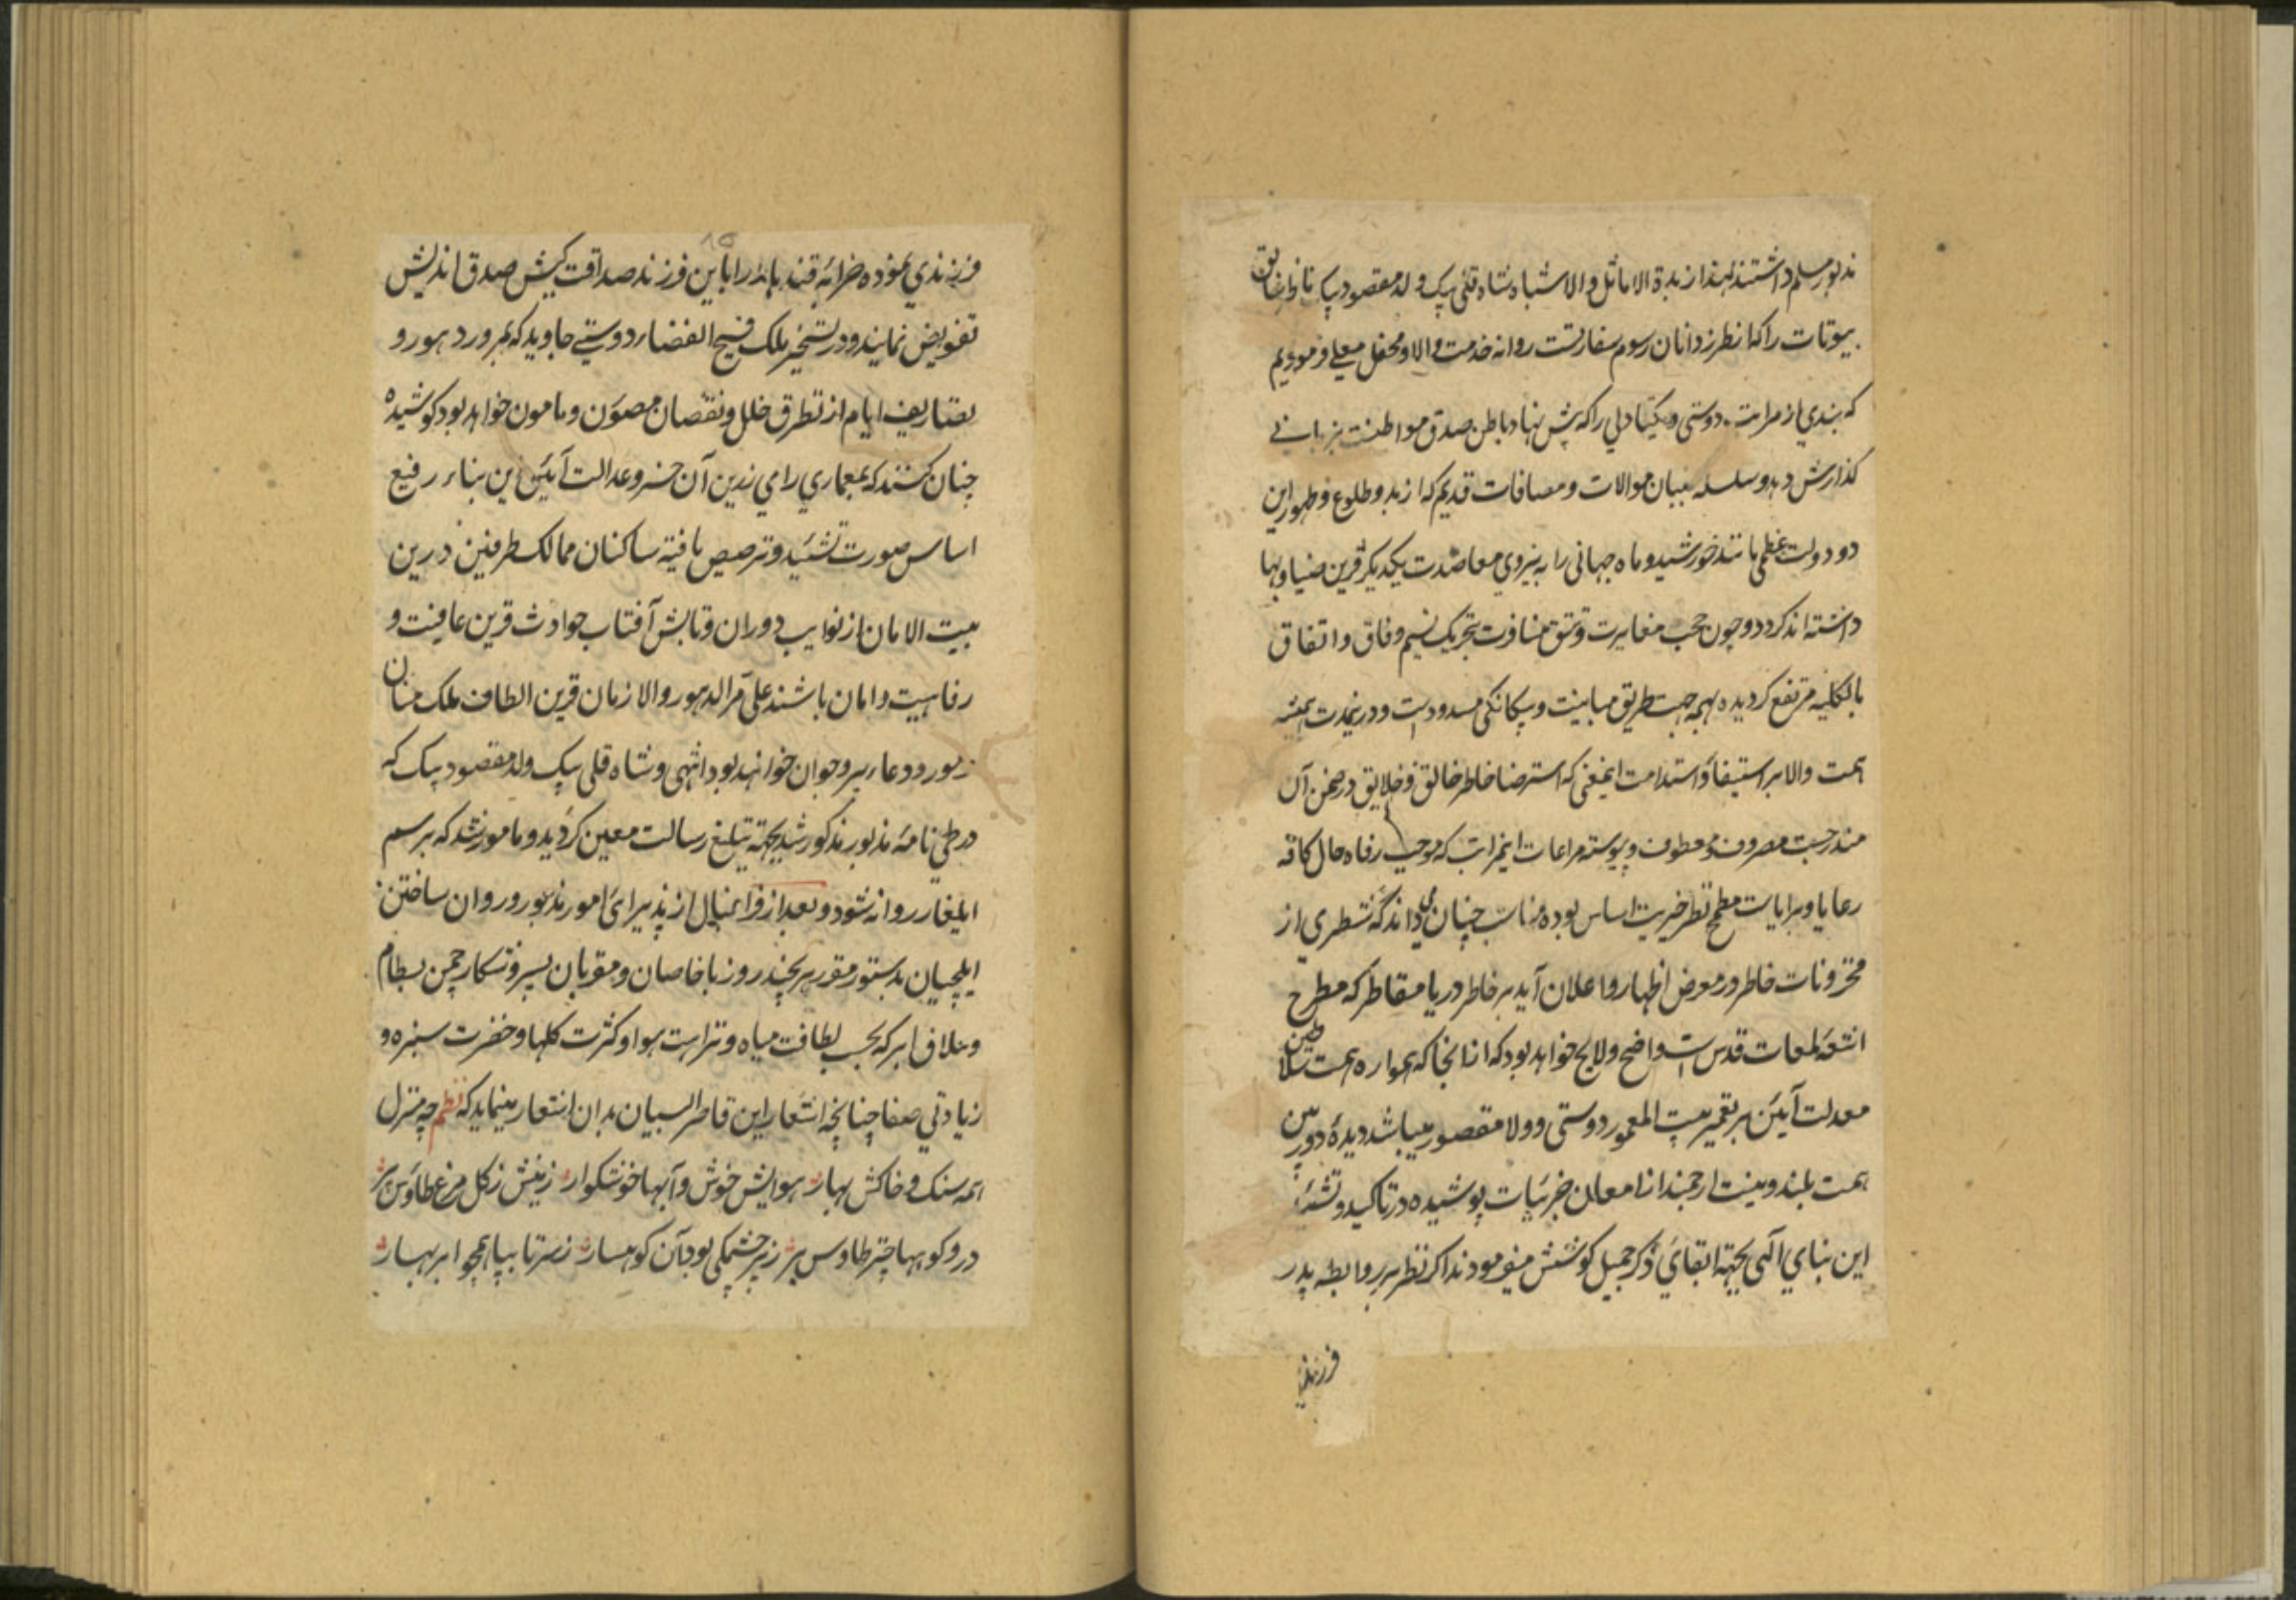 مذبور مسلم داشتند لهذا زبدة الاماثل والاشباه شاه قلی بیک ولد مقصود بیک ناظر
بیوتات را که از طرز دانان رسوم سفارتست روانه خدمت والا و محفل معلی فرمودیم
که بندی از مراتب دوستی و یکتادلی را که پیش نهاد باطن صدق مواطنست بزبانی
گذارش دهد و سلسله بنیان موالات و مصافات قدیم که از بدو طلوع و ظهور این
دو دولت عظمی مانند خورشید و ماه جهانی را به نیروی معاضدت یکدیگر قرین ضیا و بها
داشته اند کردد و چون حجب مغایرت و تتق منافرت بتحریک نسیم وفاق و اتفاق
بالکلیه مرتفع کردیده بهمه جهت طریق مباینت و بیکانکی مسدود است و درینمدت همیشه
همت والا بر استیفا و استدامت اینمعنی که استرضا خاطر خالق و خلایق در ضمن آن
مندرجست مصروف و معطوف و پیوسته مراعات اینمراتب که موجب رفاه حال کافه
رعایا و برایاست مطمح نظر خیریت اساس بوده مناسب چنان می داند که شطری از
مخزونات خاطر در معرض اظهار و اعلان آید بر خاطر دریا مقاطر که مطرح
اشعه لمعات قدس است واضح و لایح خواهد بود که از انجا که همواره همت سلاطین
معدلت آیین بر تعمیر بیت المعمور دوستی و ولا مقصور میباشد دیده دوربین
همت بلند و نیت ارجمند از امعان جزئیات پوشیده در تاکید و تشئید
این بنای الهی بجهة ابقای ذکر جمیل کوشش میفرمودند اگر نظر بر رابطه پدر
فرزندی
فرزندی نموده خرابه قندهار را باین فرزند صداقت کیش صدق اندیش
تفویض نمایند و در تسخیر ملک فسیح الفضاء دوستی جاوید که بمرور دهور و
تصاریف ایام از تطرق خلل و نقصان مصون و مامون خواهد بود کوشیده
چنان کنند که بمعماری رای زرین آن خسرو عدالت آیین این بناء رفیع
اساس صورت تشئید و ترصیص یافته ساکنان ممالک طرفین درین
بیت الامان از نوایب دوران و تابش آفتاب حوادث قرین عافیت و
رفاهیت و امان باشند علی مر الدهور والازمان قرین الطاف ملک منان
و مورد دعاء پیر و جوان خواهند بود انتهی و شاه قلی بیک ولد مقصود بیک که
در طی نامه مذبور مذکور شد بجهة تبلیغ رسالت معین کردید و مامور شد که برسم
ایلغار روانه شود و بعد از فراغبال از پذیرای امور مذبور و روان ساختن
ایلچیان بدستور مقرر هر چند روز با خاصان و مقربان بسیر و شکار چمن بسطام
و علاف ابر که بحسب لطافت میاه و نزاهت هوا و کثرت کلها و خضرت سبزه و
زیادتی صفا چنانچه اشعار این قاصر البیان بدان اشعار مینماید که نظم چه منزل
همه سنک و خاکش بهار هوایش خوش و آبها خوشکوار زمینش ز کل مرغ طاوس پر
درو کوهها چتر طاوس پر ز هر چشمکی بود آن کوهسار ز سر تا بپا همچو ابر بهار